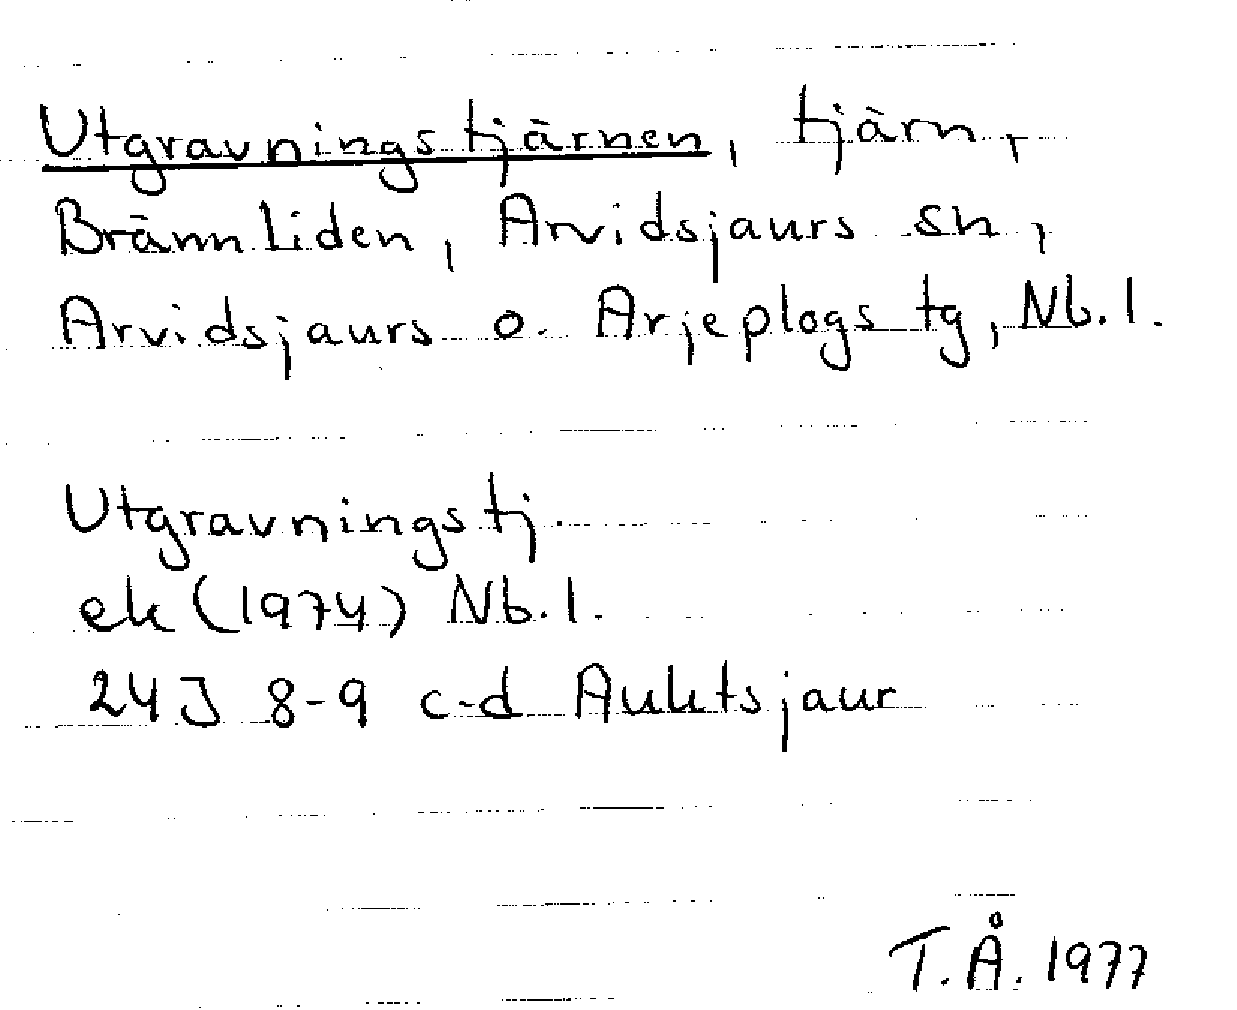 Utgravningstjärnen, tjärn,
Brännliden, Arvidsjaurs sn,
Arvidsjaurs o. Arjeplogs tg, Nb. l.
Utgravningstj.
ek (1974) Nb. l.
24J 8-9 c-d Auktsjaur
T.Å. 1977